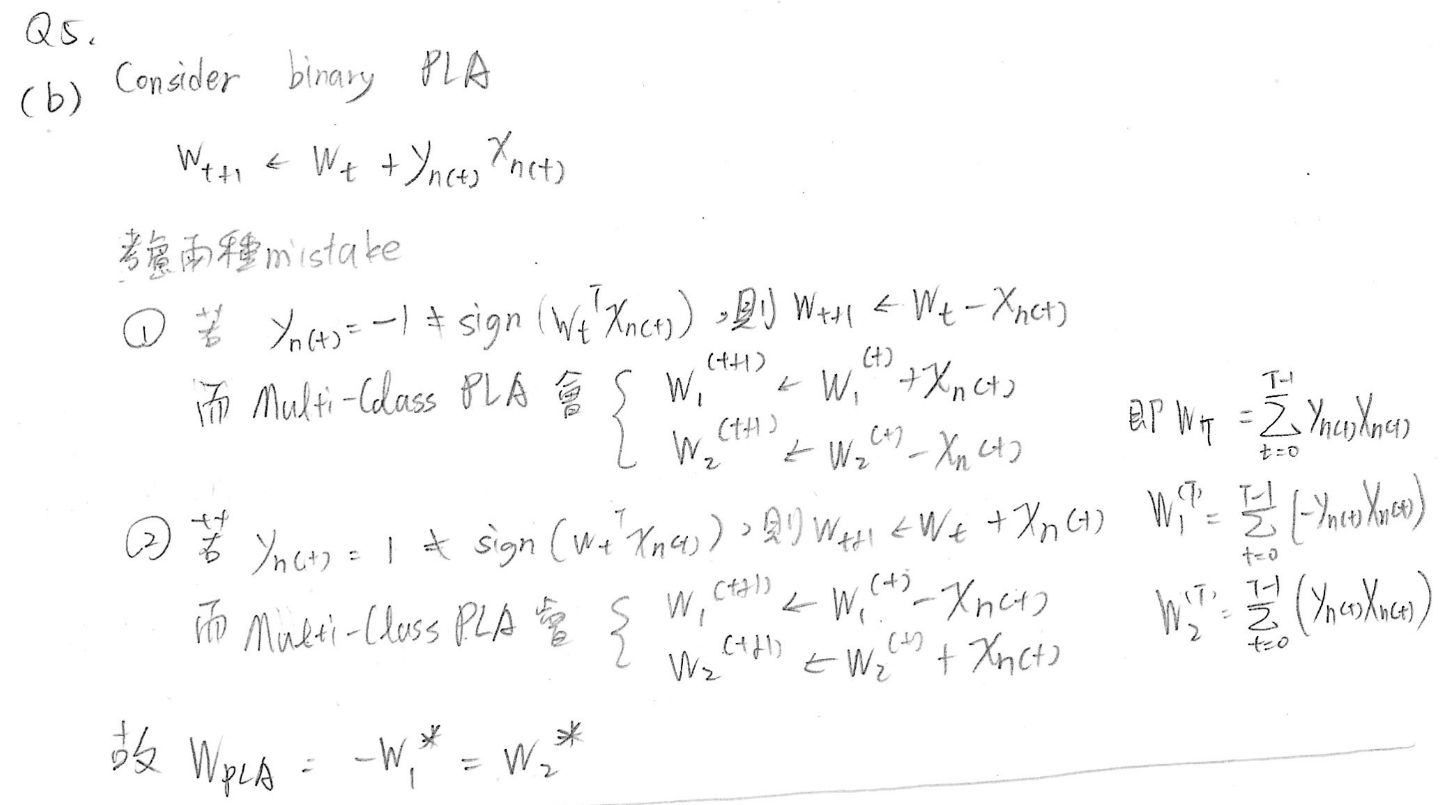 Q5.
(b) Consider binary PLA
W_{t+1} ← W_t + y_{n(t)} x_{n(t)}
考慮兩種mistake
① 若 y_{n(t)} = -1 ≠ sign (W_t^T x_{n(t)}),則 W_{t+1} ← W_t - x_{n(t)}
而 Multi-Class PLA 會 { W_1^{(t+1)} ← W_1^{(t)} + x_{n(t)}
W_2^{(t+1)} ← W_2^{(t)} - x_{n(t)}
② 若 y_{n(t)} = 1 ≠ sign (W_t^T x_{n(t)}),則 W_{t+1} ← W_t + x_{n(t)}
而 Multi-Class PLA 會 { W_1^{(t+1)} ← W_1^{(t)} - x_{n(t)}
W_2^{(t+1)} ← W_2^{(t)} + x_{n(t)}
即 W_T = \sum_{t=0}^{T-1} y_{n(t)} x_{n(t)}
W_1^{(T)} = \sum_{t=0}^{T-1} (-y_{n(t)} x_{n(t)})
W_2^{(T)} = \sum_{t=0}^{T-1} (y_{n(t)} x_{n(t)})
故 W_{PLA} = -W_1^* = W_2^*